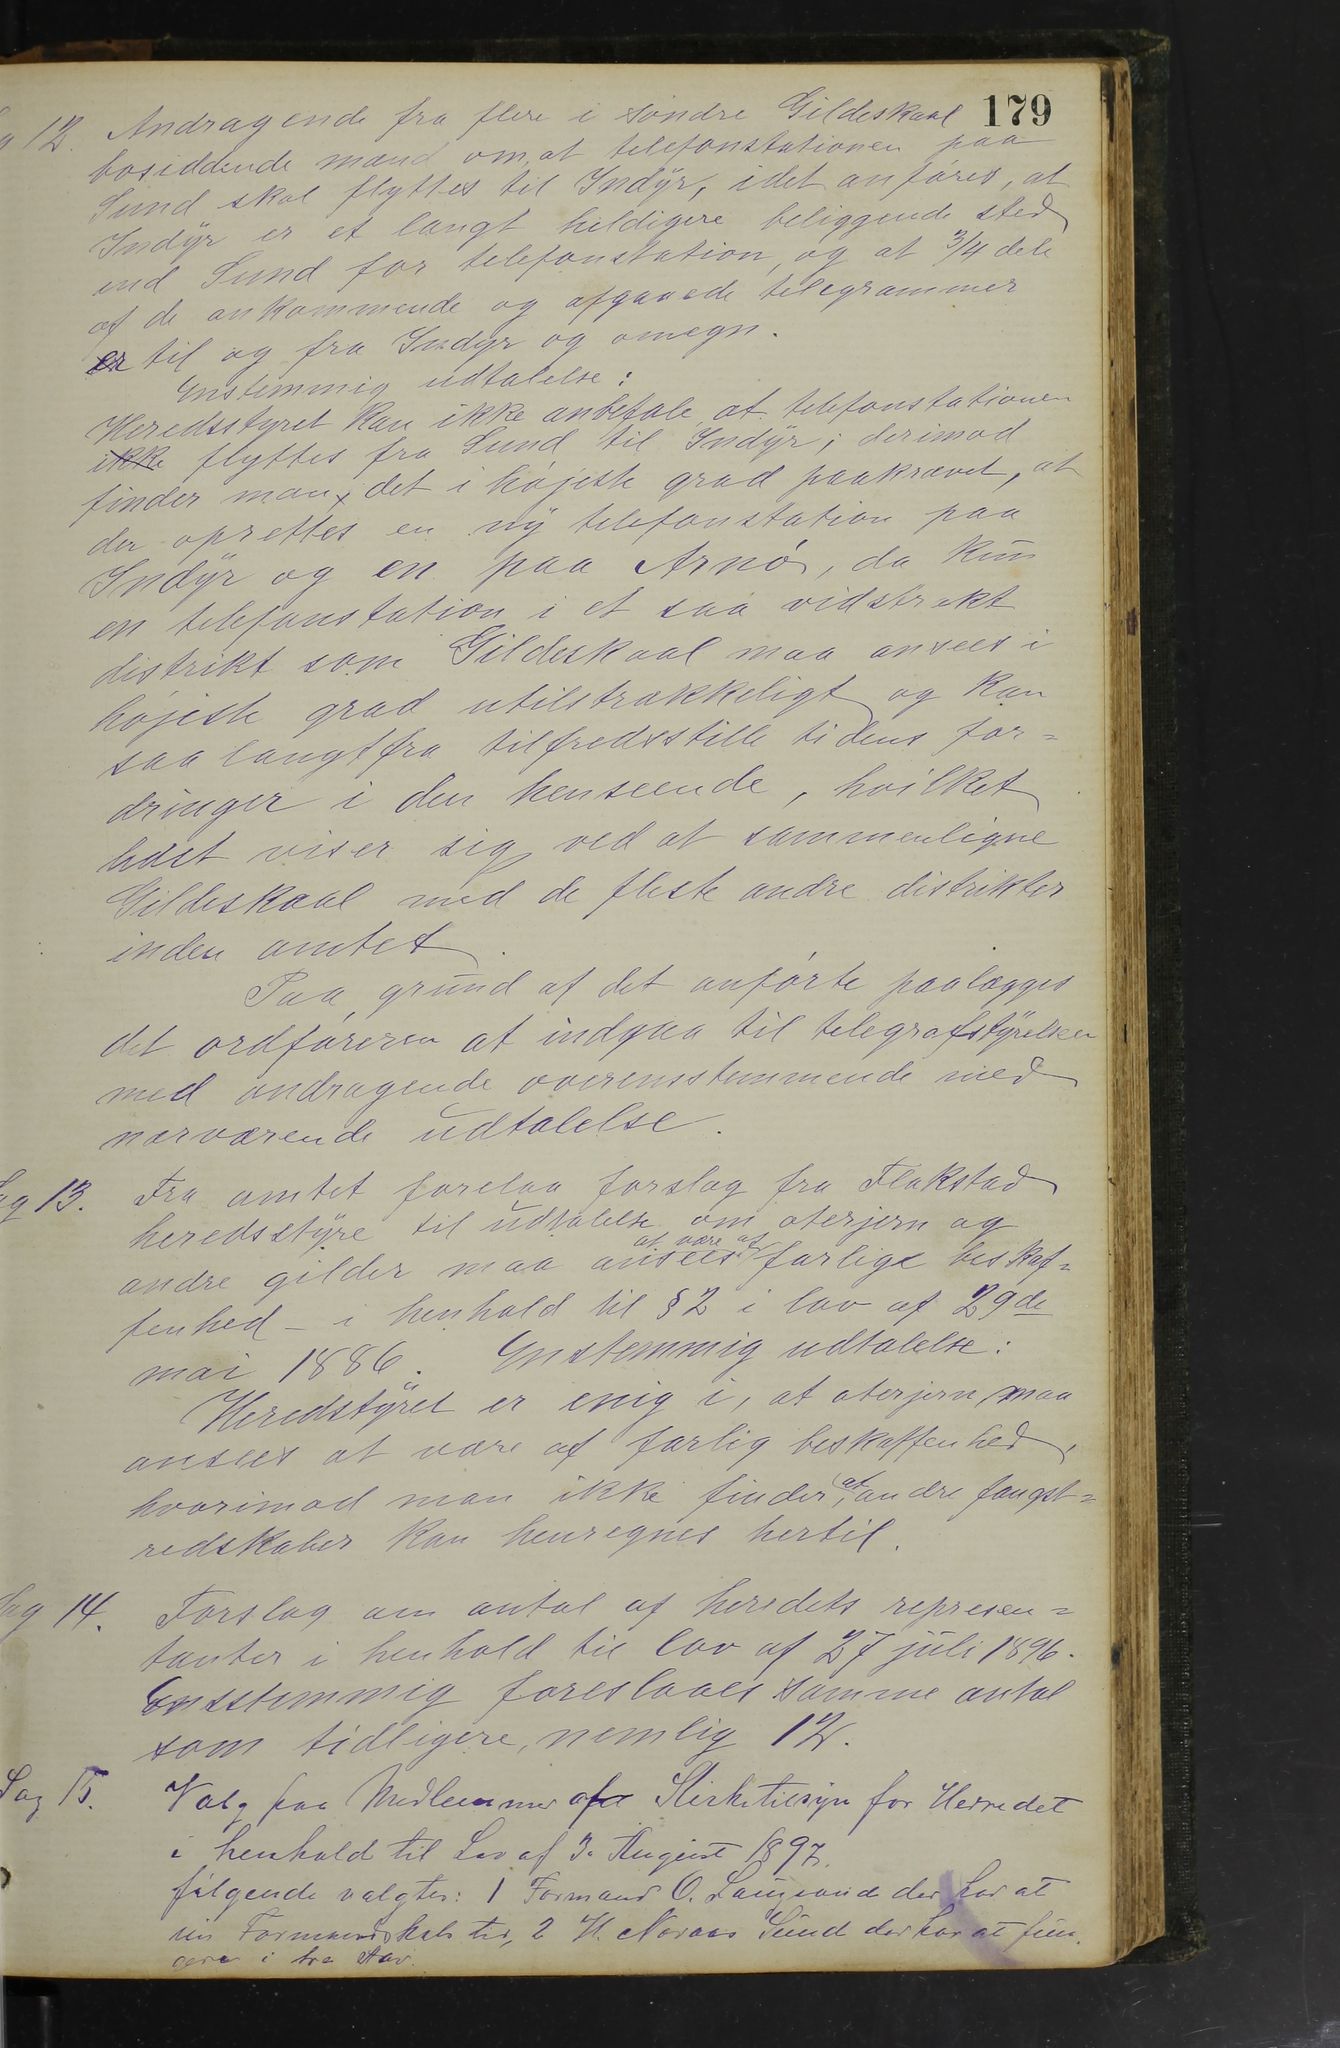 179
Sag 12. Andragende fra flere i søndre Gildeskaal
bosiddende mænd om, at telefonstationen paa
Sund skal flyttes til Indyr, idet anføres, at
Indyr er et langt heldigere beliggende sted
end Sund for telefonstation, og at 3/4 dele
af de ankommende og afgaaede telegrammer
er til og fra Indyr og omegn.
Enstemmig udtalelse:
Heredsstyret kan ikke anbefale at telefonstationen
ikke flyttes fra Sund til Indyr; derimod
finder man det i højeste grad paakrævet, at
der oprettes en ny telefonstation paa
Indyr og en paa Arnø, da kun
en telefonstation i et saa vidstrakt
distrikt som Gildeskaal maa ansees i
højeste grad utilstrækkeligt og kan
saa langt fra tilfredsstille tidens for=
dringer i den henseende, hvilket
bedst viser sig ved at sammenligne
Gildeskaal med de fleste andre distrikter
inden amtet.
Paa grund af det anførte paalægges
det ordføreren at indgaa til telegrafstyrelsen
med andragende overensstemmende med
nærværende udtalelse.
Sag 13. Fra amtet forelaa forslag fra Flakstad
heredsstyre til udtalelse om oterjern og
andre gilder maa ansees at være af farlige beskaf=
fenhed - i henhold til § 2 i lov af 29de
mai 1886. Enstemmig udtalelse:
Heredstyret er enig i, at oterjern maa
ansees at være af farlig beskaffenhed,
hvorimod man ikke finder, at andre fangst=
redskaber kan henregnes hertil.
Sag 14. Forslag om antal af heredets represen=
tanter i henhold til lov af 27 juli 1896.
Ensstemmig foreslaaes samme antal
som tidligere, nemlig 12.
Sag 15. Valg paa Medlemmer af Kirketilsyn for Herredet
i henhold til Lov af 3. August 1897.
følgende valgtes: 1 Formand O. der har at
Formandskabs tid, 2 H. Sund der har at fun,
gere i tre Aar.